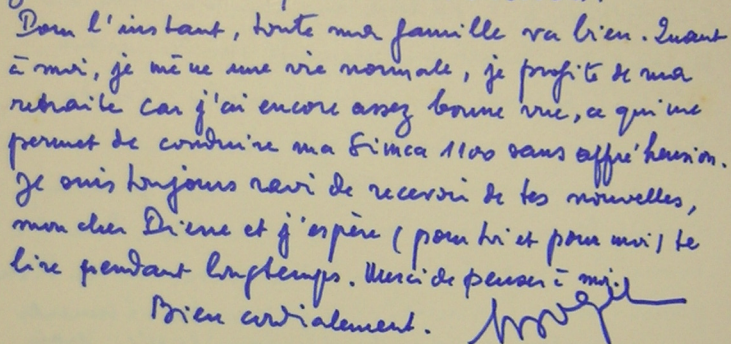 Pour l'instant, toute ma famille va bien. Quant
à moi, je mène une vie normale, je profite de ma
retraite car j'ai encore assez bonne vue, ce qui me
permet de conduire ma Simca 1100 sans appréhension.
Je suis toujours ravi de recevoir de tes nouvelles,
mon cher Pierre et j'espère (pour toi et pour moi) te
lire pendant longtemps. Merci de penser à moi.
Bien cordialement.